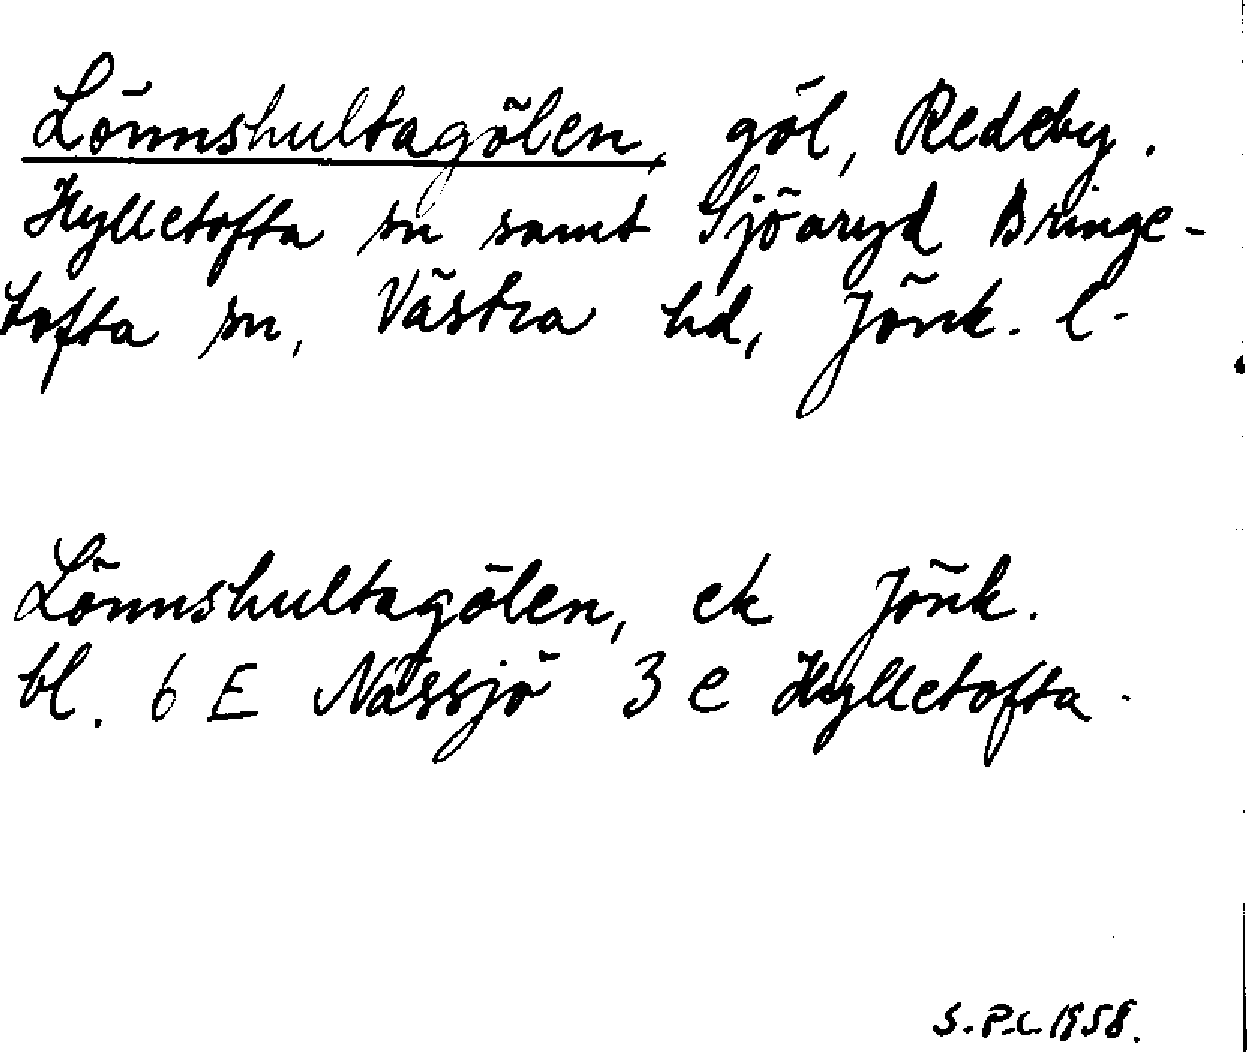 Lönnshultagölen, göl, Redeby.
Hylletofta sn samt Sjöaryd Bringe-
tofta sn, Västra hd, Jönk. l.
Lönnshultagölen, ek Jönk.
bl. 6 E Nässjö 3 e Hylletofta.
S.P.L. 1958.